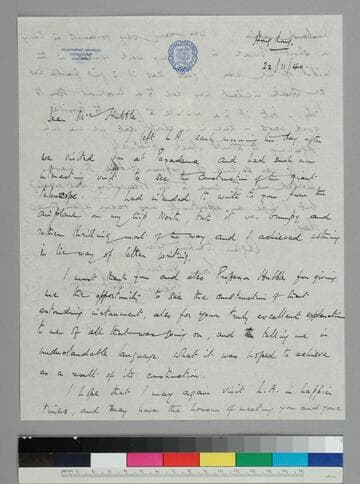 Hong Kong.
22/11/40
Dear Mrs Hubble
I left L.A. early morning the day after
we visited you at Pasadena and had such an
interesting visit to see the construction of the great
telescope. I had intended to write to you from the
airplane on my trip North, but it was bumpy and
rather thrilling most of the way and I achieved nothing
in the way of letter writing.
I must thank you and also Professor Hubble for giving
me the opportunity to see the construction of that
astounding instrument, also for your truly excellent explanation
to me of all that was going on, and telling me in
understandable language what it was hoped to achieve
as a result of its construction.
I hope that I may again visit L.A. in happier
times, and may have the honour of meeting you and your